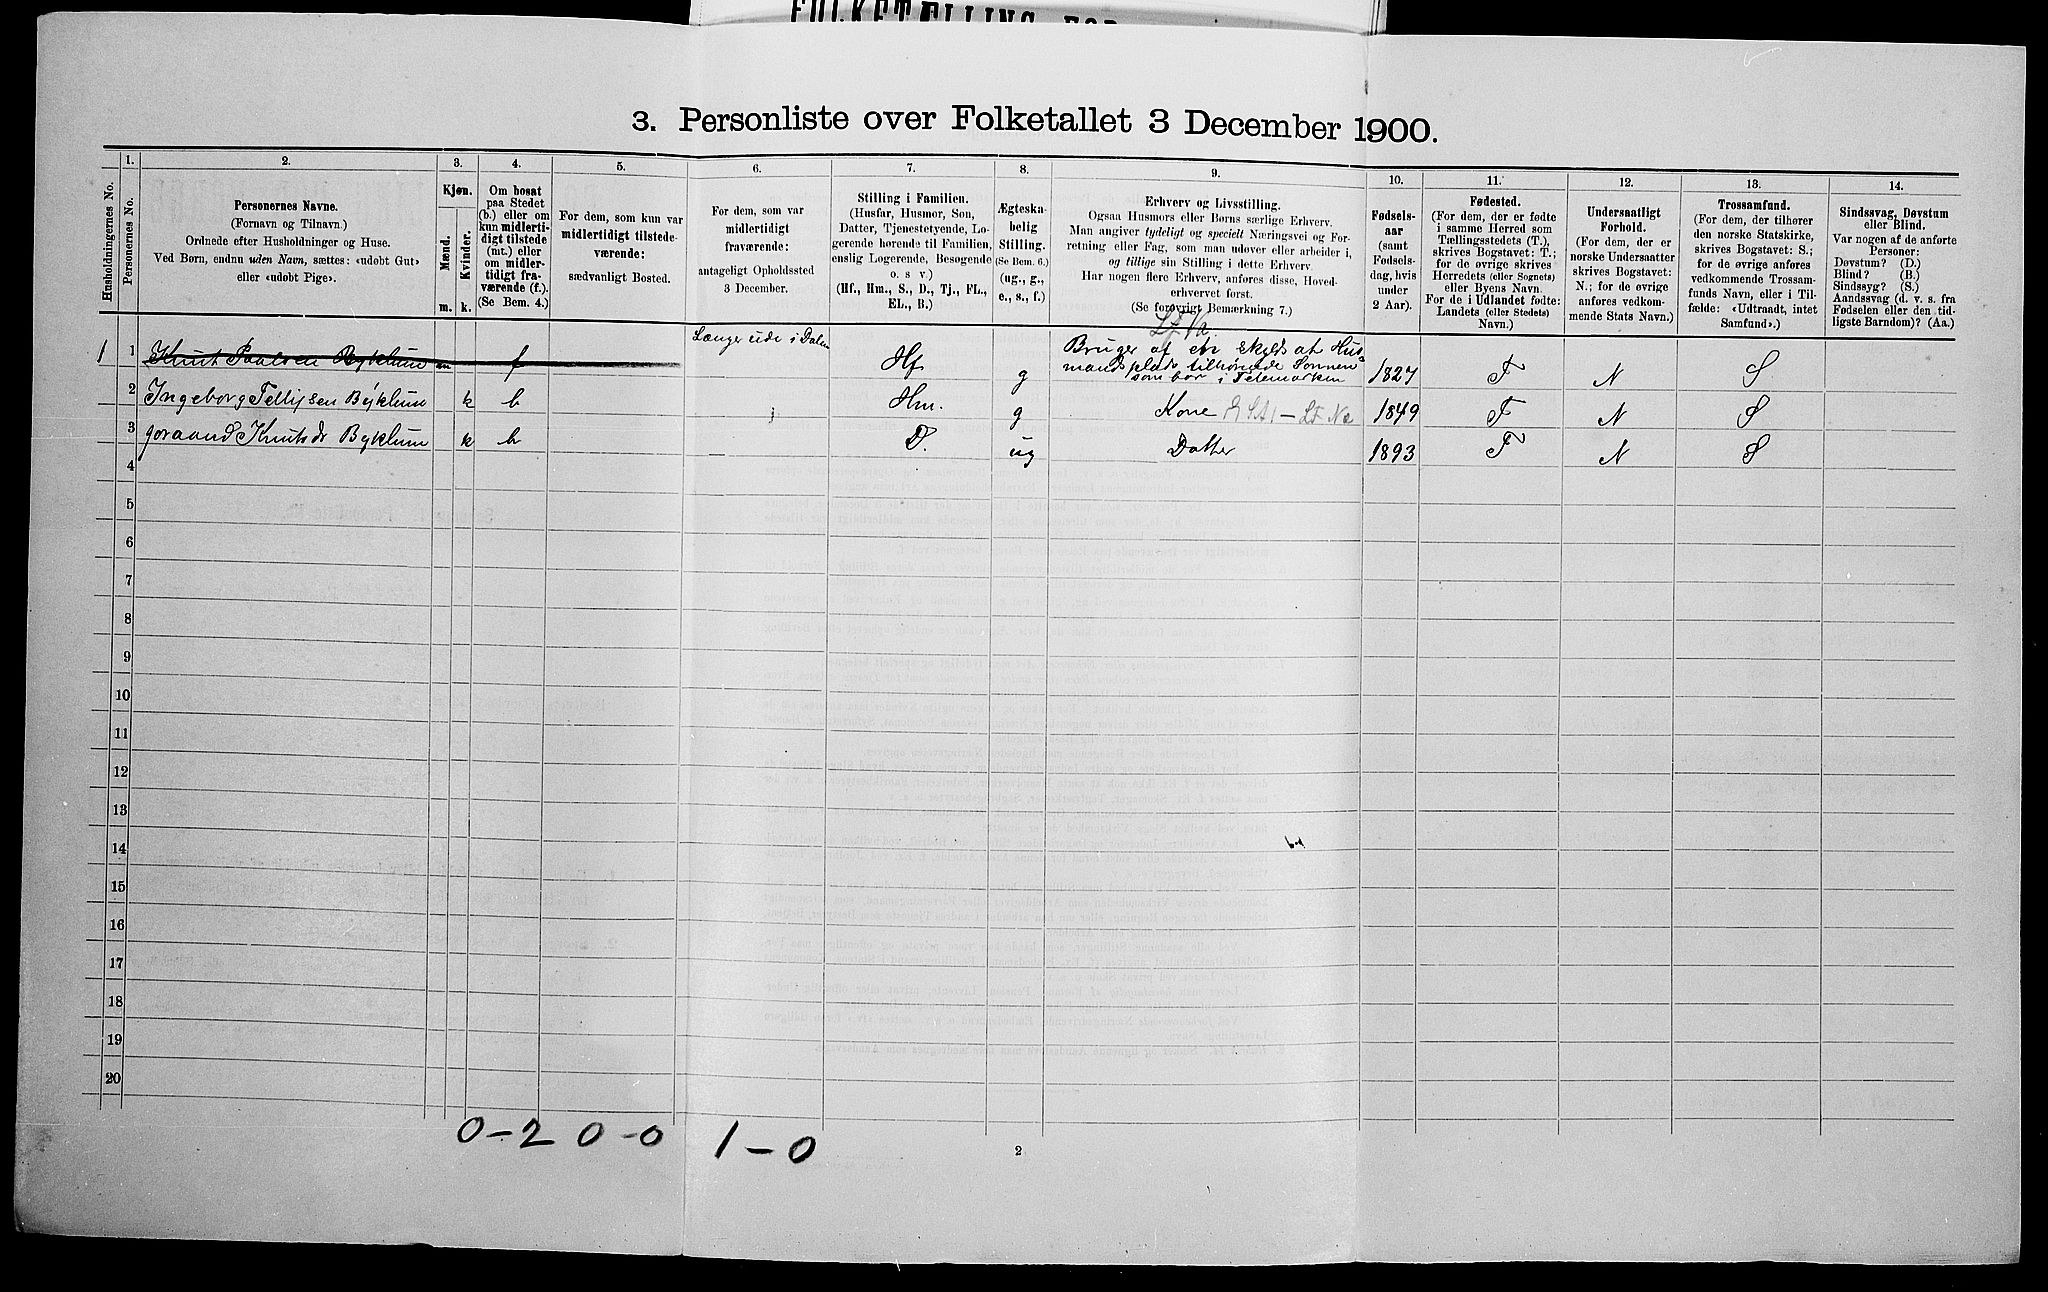 FOLKETÆLLING FOR
3. Personliste over Folketallet 3 December 1900.
Husholdningernes No.
1.
Personernes No.
2.
Personernes Navne.
(Fornavn og Tilnavn.)
Ordnede efter Husholdninger og Huse.
Ved Børn, endnu uden Navn, sættes: «udobt Gut»
eller «udobt Pige».
3.
Kjøn.
Mænd.
Kvinder.
m.
k.
4.
Om bosat
paa Stedet
(b.) eller om
kun midlerti-
digt tilstede
(mt.) eller
om midler-
tidigt fra-
værende (f.).
(Se Bem. 4.)
5.
For dem, som kun var
midlertidigt tilstede-
værende:
sædvanligt Bosted.
6.
For dem, som var
midlertidigt
fraværende:
antageligt Opholdssted
3 December.
7.
Stilling i Familien.
(Husfar, Husmor, Søn,
Datter, Tjenestetyende, Lo-
gerende hørende til Familien,
enslig Logerende, Besøgende
o. s v.)
(Hf., Hm., S., D., Tj., FL.,
EL., B.)
8.
Ægteska-
belig
Stilling.
(Se Bem. 6.)
(ug., g.,
e., s., f.)
9.
Erhverv og Livsstilling.
Ogsaa Husmors eller Børns særlige Erhverv.
Man angiver tydeligt og specielt Næringsvei og For-
retning eller Fag, som man udøver eller arbeider i,
og tillige sin Stilling i dette Erhverv.
Har nogen flere Erhverv, anføres disse, Hoved-
erhvervet først.
(Se forøvrigt Bemærkning 7.)
10.
Fødsels-
aar
(samt
Fødsels-
dag, hvis
under
2 Aar).
11.
Fødested.
(For dem, der er fødte
i samme Herred som
Tællingsstedets (T.),
skrives Bogstavet: T.;
for de øvrige skrives
Herredets (eller Sognets)
eller Byens Navn.
For de i Udlandet fødte:
Landets (eller Stedets)
Navn.)
12.
Undersaatligt
Forhold.
(For dem, der er
norske Undersaatter
skrives Bogstavet:
N.; for de øvrige
anføres vedkom-
mende Stats Navn.)
13.
Trossamfund.
(For dem, der tilhører
den norske Statskirke,
skrives Bogstavet: S.;
for de øvrige anføres
vedkommende Trossam-
funds Navn, eller i Til-
fælde: «Udtraadt, intet
Samfund».)
14.
Sindssvag, Døvstum
eller Blind.
Var nogen af de anførte
Personer:
Døvstum? (D.)
Blind? (B.)
Sindssyg? (S.)
Aandssvag (d. v. s. fra
Fødselen eller den tid-
ligste Barndom)? (Aa.)
1 1 Knut Paalsen Byklum m f Længer ude i Dalen Hf g Bruger af en skyldsat Hus-
mandsplads tilhørende Sønnen
som bor i Telemarken 1827 T N S
2 Ingeborg Tellefsen Byklum k b Hm. g Kone 1849 T N S
3 Goraand Knutsdr Byklum k b D. ug Datter 1893 T N S
4
5
6
7
8
9
10
11
12
13
14
15
16
17
18
19
20
0-2 0-0 1-0
2